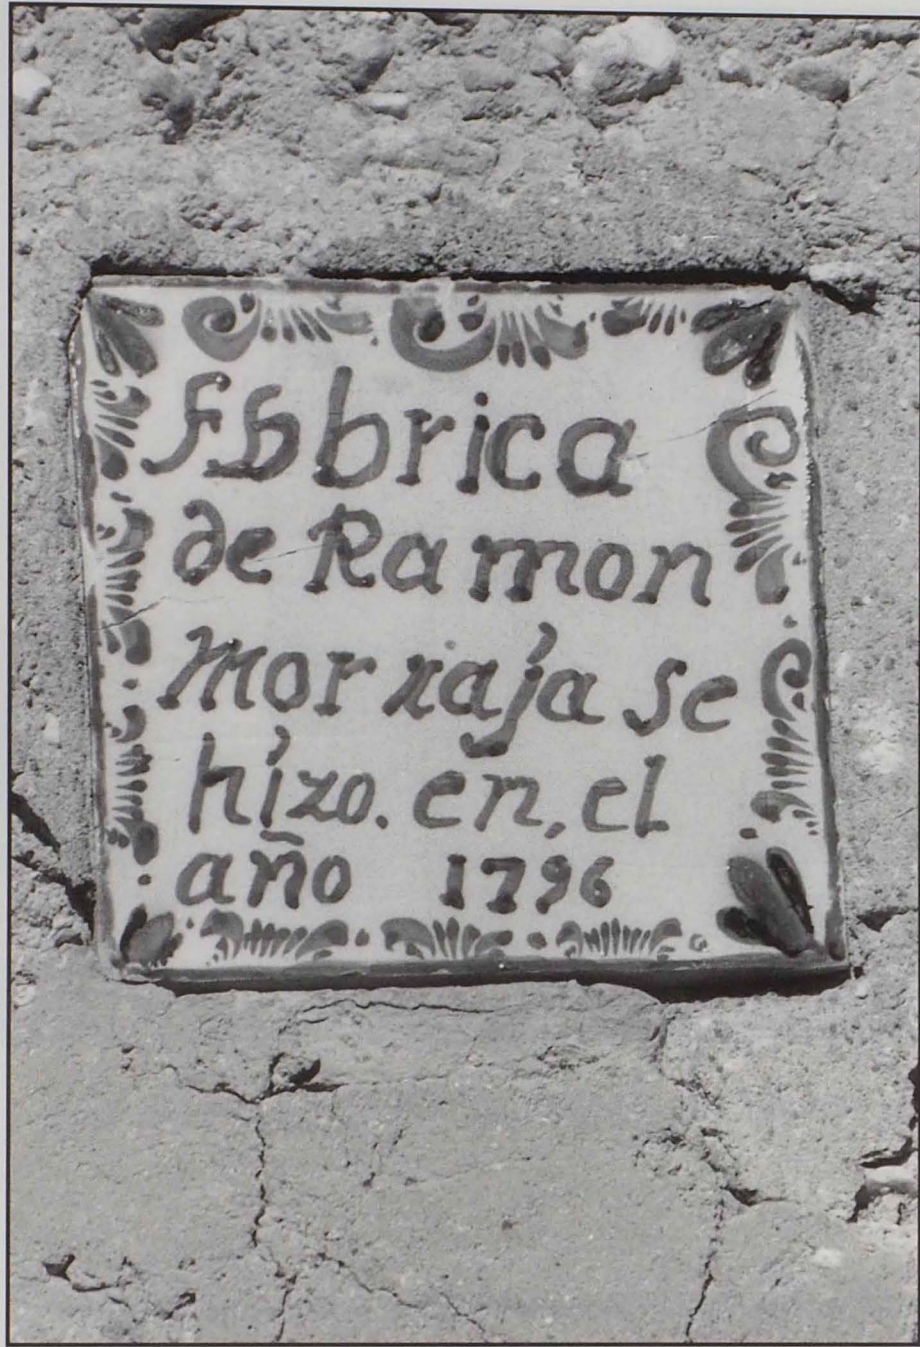 fabrica
de Ramon
morxaja se
hizo. en, el
año 1796